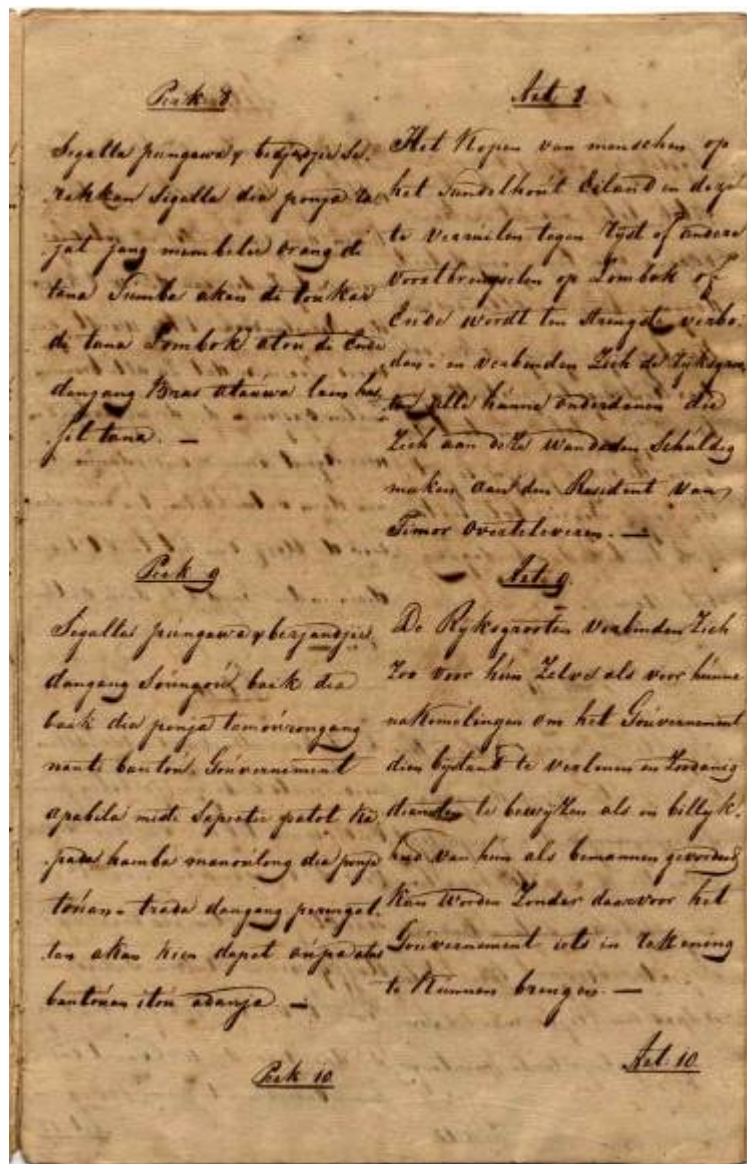 Perk 8
Segalla pungawa2 berdjandjie Se-
rahkan Segalla dia ponja ra-
jat jang membelie orang di
tana Sumba akan di toúkar
di tana Lombok atou di Ende
dangang Bras ataúwa laen ha-
sil tana. —
Perk 9
Segalla pungawa2 berjandjie
dangang Soúngoú baik dia
baik dia ponja tamoúrongang
nanti banton Goúvernement
apabela
pada hamba manoúlong dia ponja
toúan - trada dangang
akan
bantoúan itoú adanja. —
Perk 10
Art. 8
Het Kopen van menschen op
het Sandelhout Eiland en deze
te verruilen tegen Ryst of andere
voortbrengselen op Lombok of
Ende wordt ten strengste verbo-
den - en verbinden Zich de ryksgroo-
ten alle húnne onderdanen die
Zich aan deze wandaden Schúldig
maken aan den Resident van
Timor overteleveren. —
Art. 9
De Ryksgrooten verbinden Zich
Zoo voor hún Zelve als voor húnne
nakomelingen om het Goúvernement
dien bystand te verleenen en Zoodanig
diensten te bewyzen als in billyk-
heid van hún als gevorderd
Kan worden Zonder daarvoor het
Goúvernement iets in rekening
te Kúnnen brengen. —
Art. 10